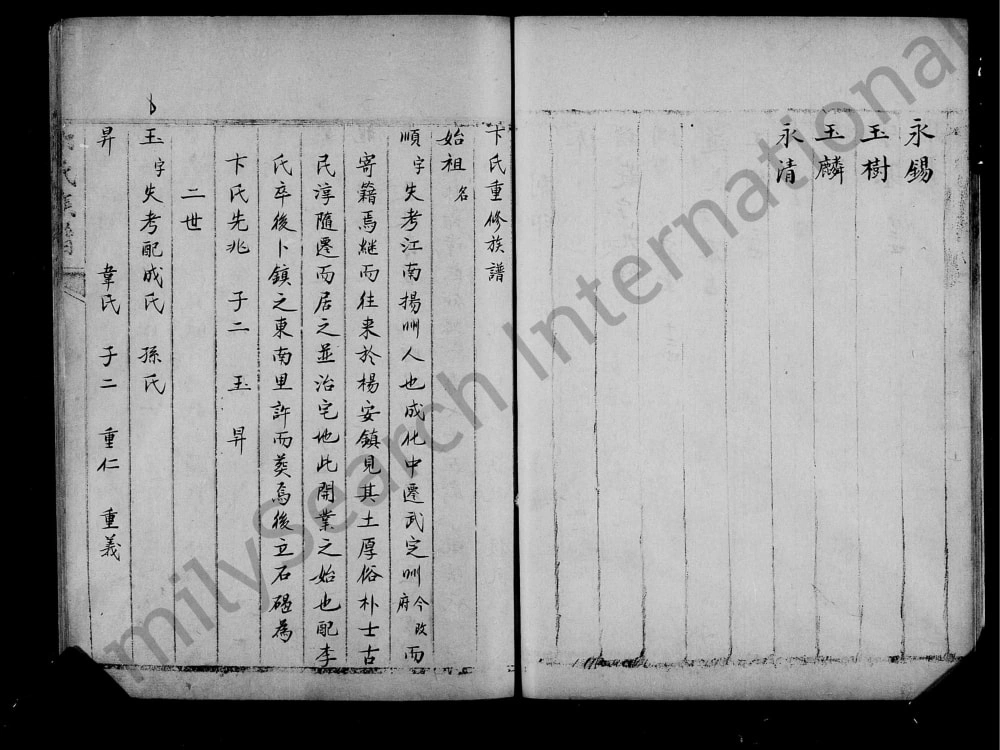 永錫
玉樹
玉麟
永清
卞氏重修族譜
始祖名
順字失考江南揚州人也成化中遷武定州今改府而
寄籍焉継而往来於楊安鎮見其土厚俗朴士古
民淳隨遷而居之並治宅地此開業之始也配李
氏卒後卜鎮之東南里許而葬焉後立石碣為
卞氏先兆 子二 玉 昇
二世
玉字失考配成氏 孫氏
昇 韋氏 子二 重仁 重義
FamilySearch International